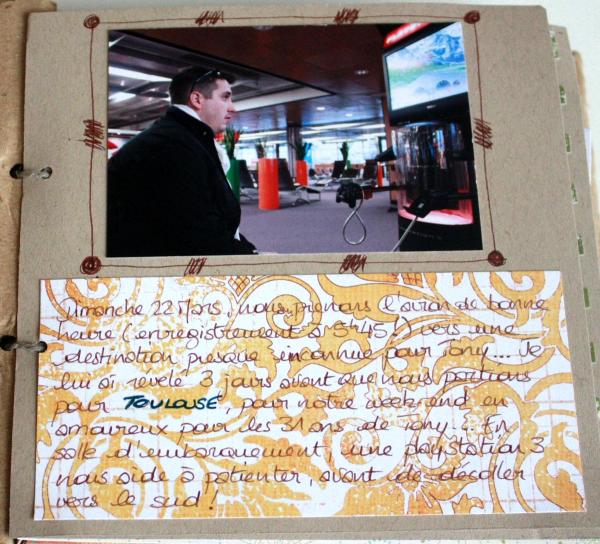 Dimanche 22 Mars, nous prenons l'avion de bonne
heure (enregistrement à 5h45!) vers une
destination presque inconnue pour Tony... Je
lui ai révélé 3 jours avant que nous partions
pour TOULOUSE, pour notre week-end en
amoureux pour les 31 ans de Tony... En
salle d'embarquement, une playstation 3
nous aide à patienter, avant de décoller
vers le sud !